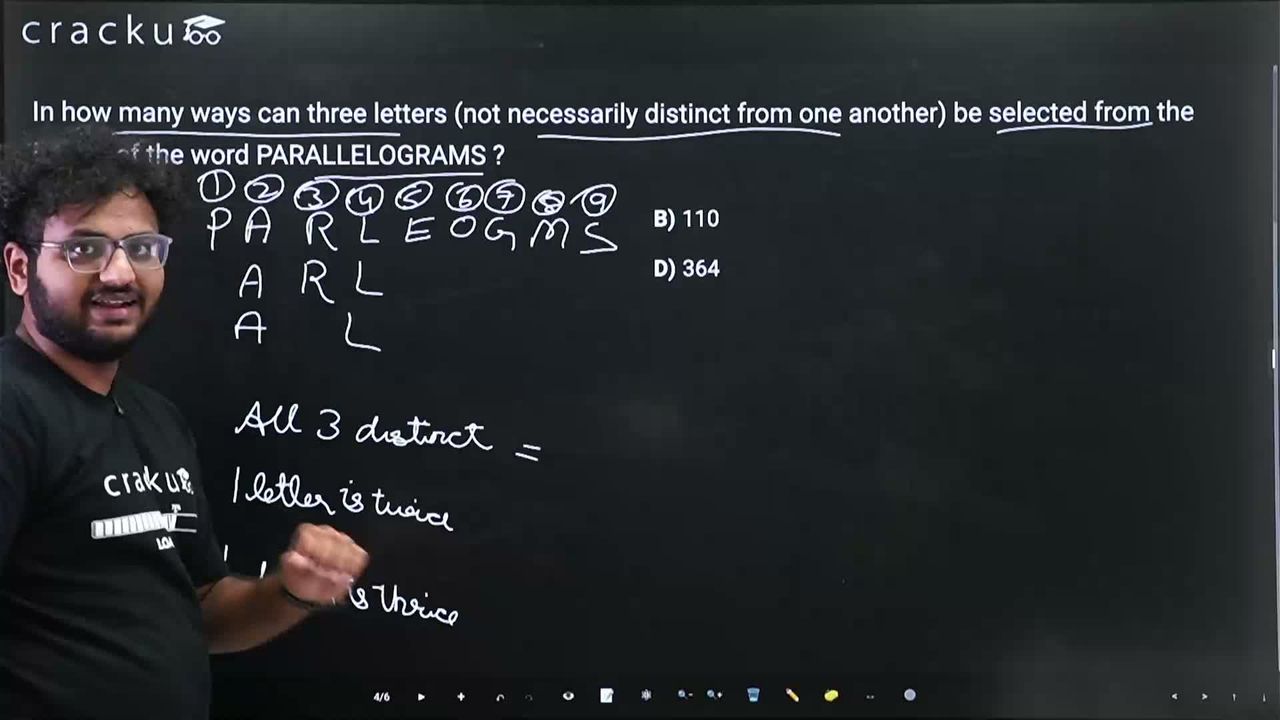 cracku
In how many ways can three letters (not necessarily distinct from one another) be selected from the
of the word PARALLELOGRAMS ?
1 2 3 4 5 6 7 8 9
P A R L E O G M S
B) 110
A R L
D) 364
A L
All 3 distinct =
1 letter is twice
cracku
is thrice
4/6